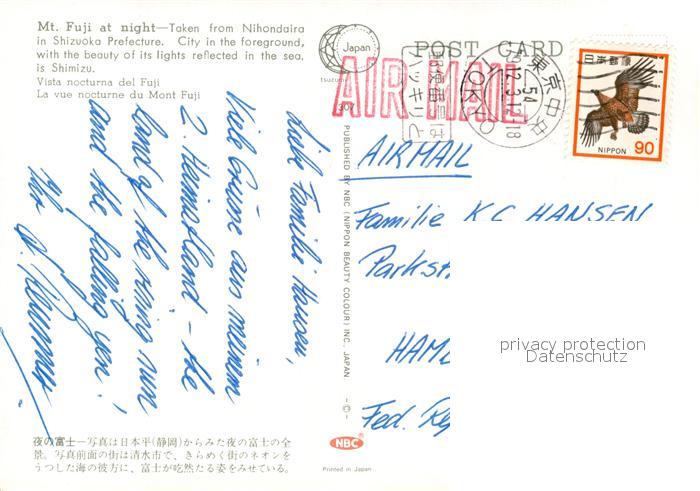 Mt. Fuji at night—Taken from Nihondaira
in Shizuoka Prefecture. City in the foreground,
with the beauty of its lights reflected in the sea,
is Shimizu.
Vista nocturna del Fuji
La vue nocturne du Mont Fuji
Japan
tsuzumi
307
POST CARD
AIR MAIL
郵便番号は
ハッキリと
東京中央
54
TOKYO
日本郵便
NIPPON
90
Liebe Familie Hansen,
Viele Grüsse aus meinem
2. Heimatland - the
land of the rising sun
and the falling yen!
Ihr
PUBLISHED BY NBC (NIPPON BEAUTY COLOUR) INC. JAPAN
-©-
NBC
Printed in Japan
AIRMAIL
Familie KC HANSEN
Parkst
HAM
Fed. Rep
privacy protection
Datenschutz
夜の富士—写真は日本平(静岡)からみた夜の富士の全
景。写真前面の街は清水市で、きらめく街のネオンを
うつした海の彼方に、富士が吃然たる姿をみせている。